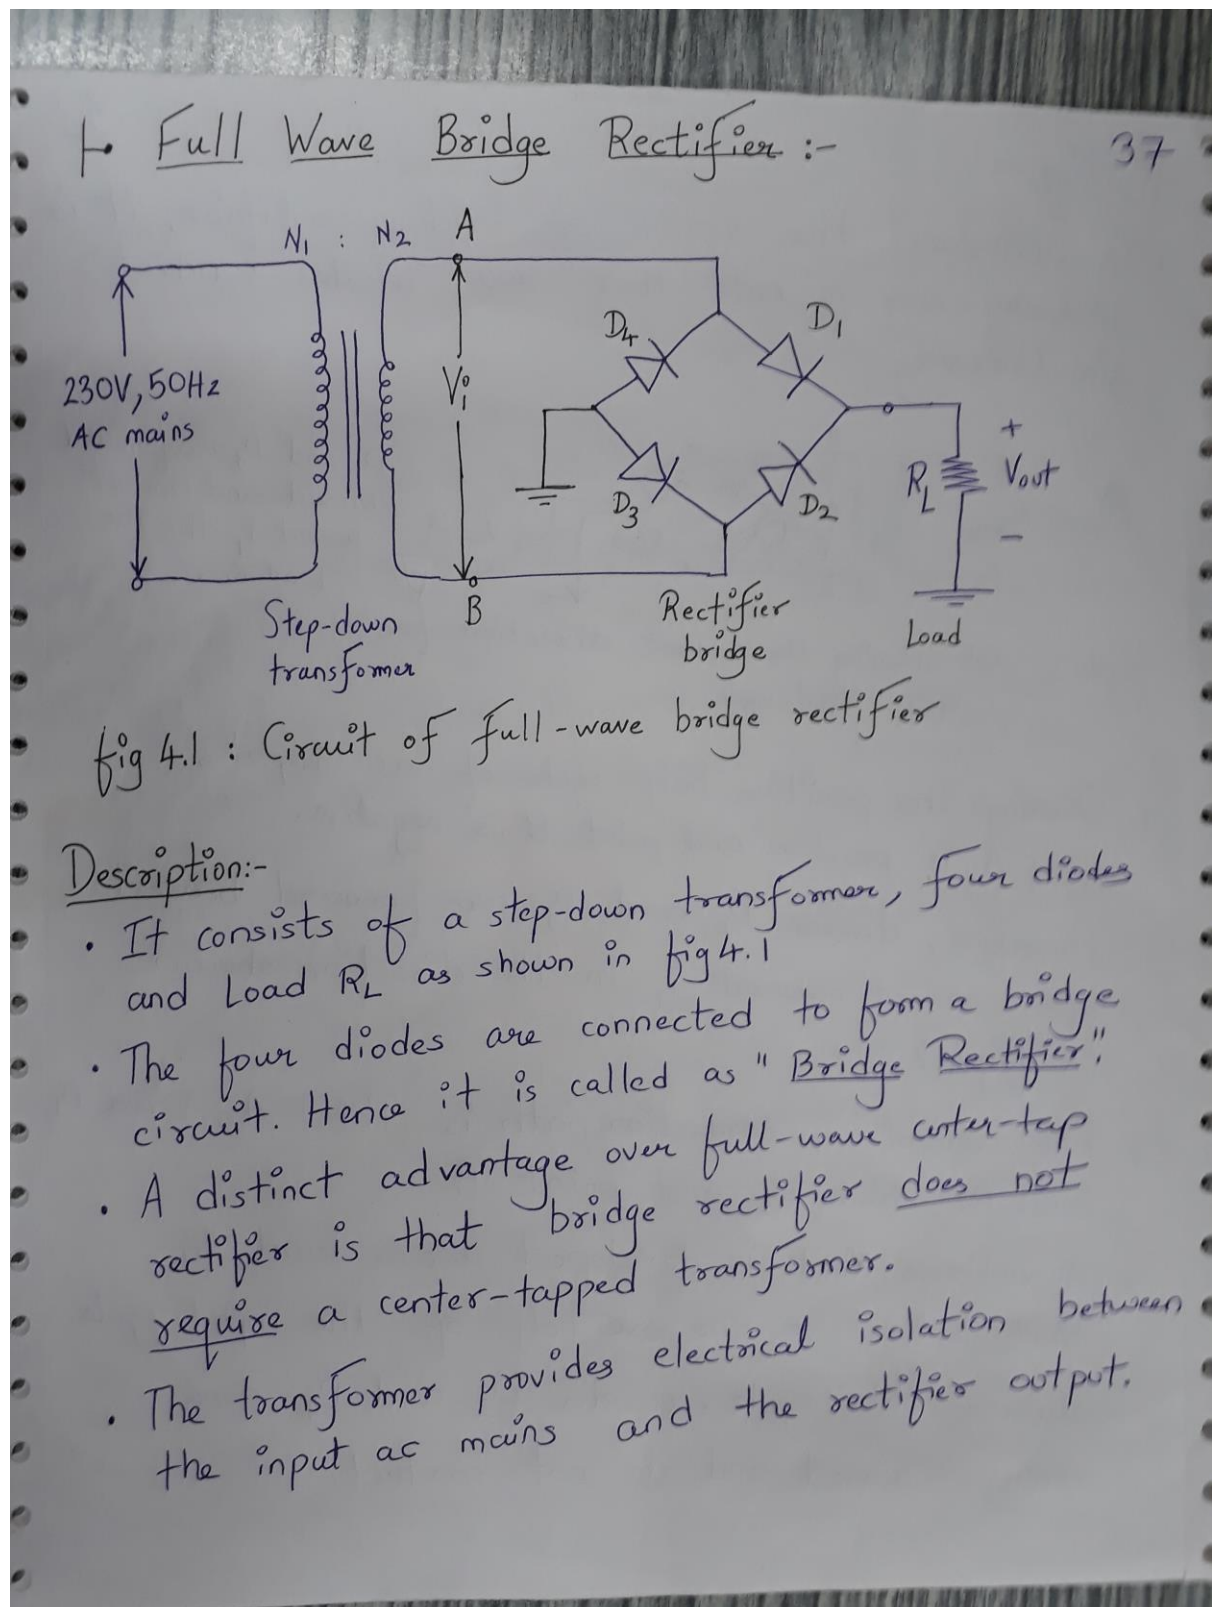 Full Wave Bridge Rectifier :-
37
N1 : N2
A
D4
D1
230V, 50Hz
AC mains
Vi
+
RL
Vout
-
D3
D2
B
Step-down
transformer
Rectifier
bridge
Load
fig 4.1 : Circuit of full-wave bridge rectifier
Description:-
• It consists of a step-down transformer, four diodes
and Load RL as shown in fig 4.1
• The four diodes are connected to form a bridge
circuit. Hence it is called as "Bridge Rectifier".
• A distinct advantage over full-wave center-tap
rectifier is that bridge rectifier does not
require a center-tapped transformer.
• The transformer provides electrical isolation between
the input ac mains and the rectifier output.